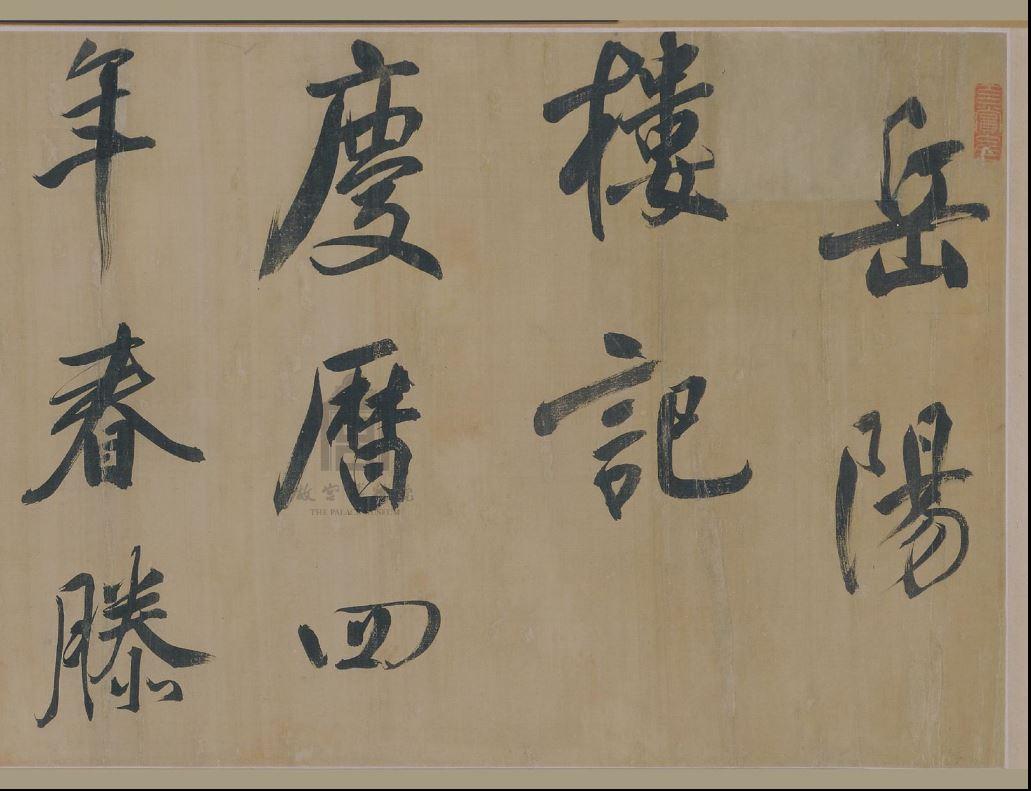 岳陽
樓記
慶曆四
年春滕
THE PALACE MUSEUM